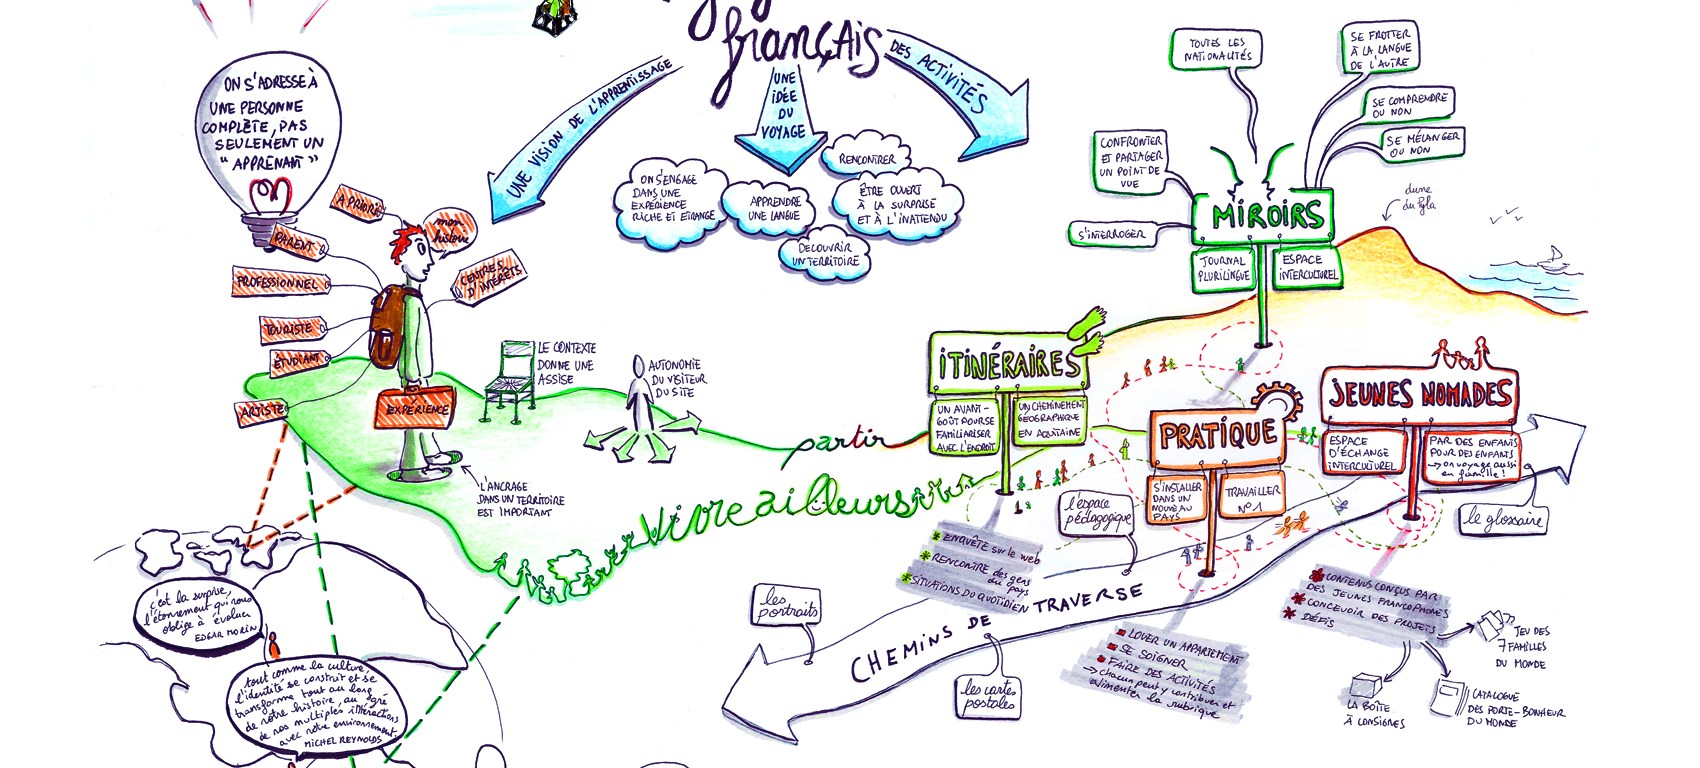 français
ON S'ADRESSE À
UNE PERSONNE
COMPLÈTE, PAS
SEULEMENT UN
"APPRENANT"
UNE VISION DE L'APPRENTISSAGE
UNE
IDÉE
DU
VOYAGE
DES ACTIVITÉS
A PRIORI
PARENT
PROFESSIONNEL
TOURISTE
ÉTUDIANT
ARTISTE
mon
histoire
CENTRES
D'INTÉRÊTS
EXPERIENCE
ON S'ENGAGE
DANS UNE
EXPÉRIENCE
RICHE ET ETRANGE
APPRENDRE
UNE LANGUE
RENCONTRER
ÊTRE OUVERT
À LA SURPRISE
ET À L'INATTENDU
DECOUVRIR
UN TERRITOIRE
TOUTES LES
NATIONALITÉS
SE FROTTER
À LA LANGUE
DE L'AUTRE
SE COMPRENDRE
OU NON
SE MÉLANGER
OU NON
CONFRONTER
ET PARTAGER
UN POINT DE
VUE
S'INTERROGER
MIROIRS
JOURNAL
PLURILINGUE
ESPACE
INTERCULTUREL
dune
du Pyla
LE CONTEXTE
DONNE UNE
ASSISE
AUTONOMIE
DU VISITEUR
DU SITE
L'ANCRAGE
DANS UN TERRITOIRE
EST IMPORTANT
partir
Vivre ailleurs
ITINÉRAIRES
UN AVANT-
GOÛT POUR SE
FAMILIARISER
AVEC L'ENDROIT
UN CHEMINEMENT
GÉOGRAPHIQUE
EN AQUITAINE
ENQUÊTE sur le web
RENCONTRE des gens
du pays
SITUATIONS DU QUOTIDIEN
PRATIQUE
S'INSTALLER
DANS UN
NOUVEAU
PAYS
TRAVAILLER
N°1
LOUER UN APPARTEMENT
SE SOIGNER
FAIRE DES ACTIVITÉS
→ chacun peut y contribuer et
alimenter la rubrique
JEUNES NOMADES
ESPACE
D'ÉCHANGE
INTERCULTUREL
PAR DES ENFANTS
POUR DES ENFANTS
→ on voyage aussi
en famille !
CONTENUS CONÇUS PAR
DES JEUNES FRANCOPHONES
CONCEVOIR DES PROJETS
DÉFIS
JEU DES
7 FAMILLES
DU MONDE
LA BOÎTE
À CONSIGNES
CATALOGUE
DES PORTE-BONHEUR
DU MONDE
CHEMINS DE TRAVERSE
les
portraits
les cartes
postales
l'espace
pédagogique
le glossaire
c'est la surprise,
l'étonnement qui nous
oblige à évoluer
EDGAR MORIN
tout comme la culture,
l'identité se construit et se
transforme tout au long
de notre histoire, au gré
de nos multiples interactions
avec notre environnement.
MICHEL REYNOLDS